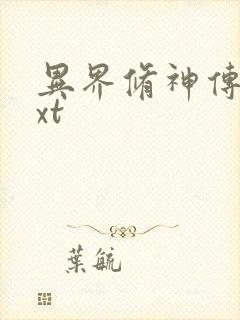 異界脩神傳
xt
葉毓